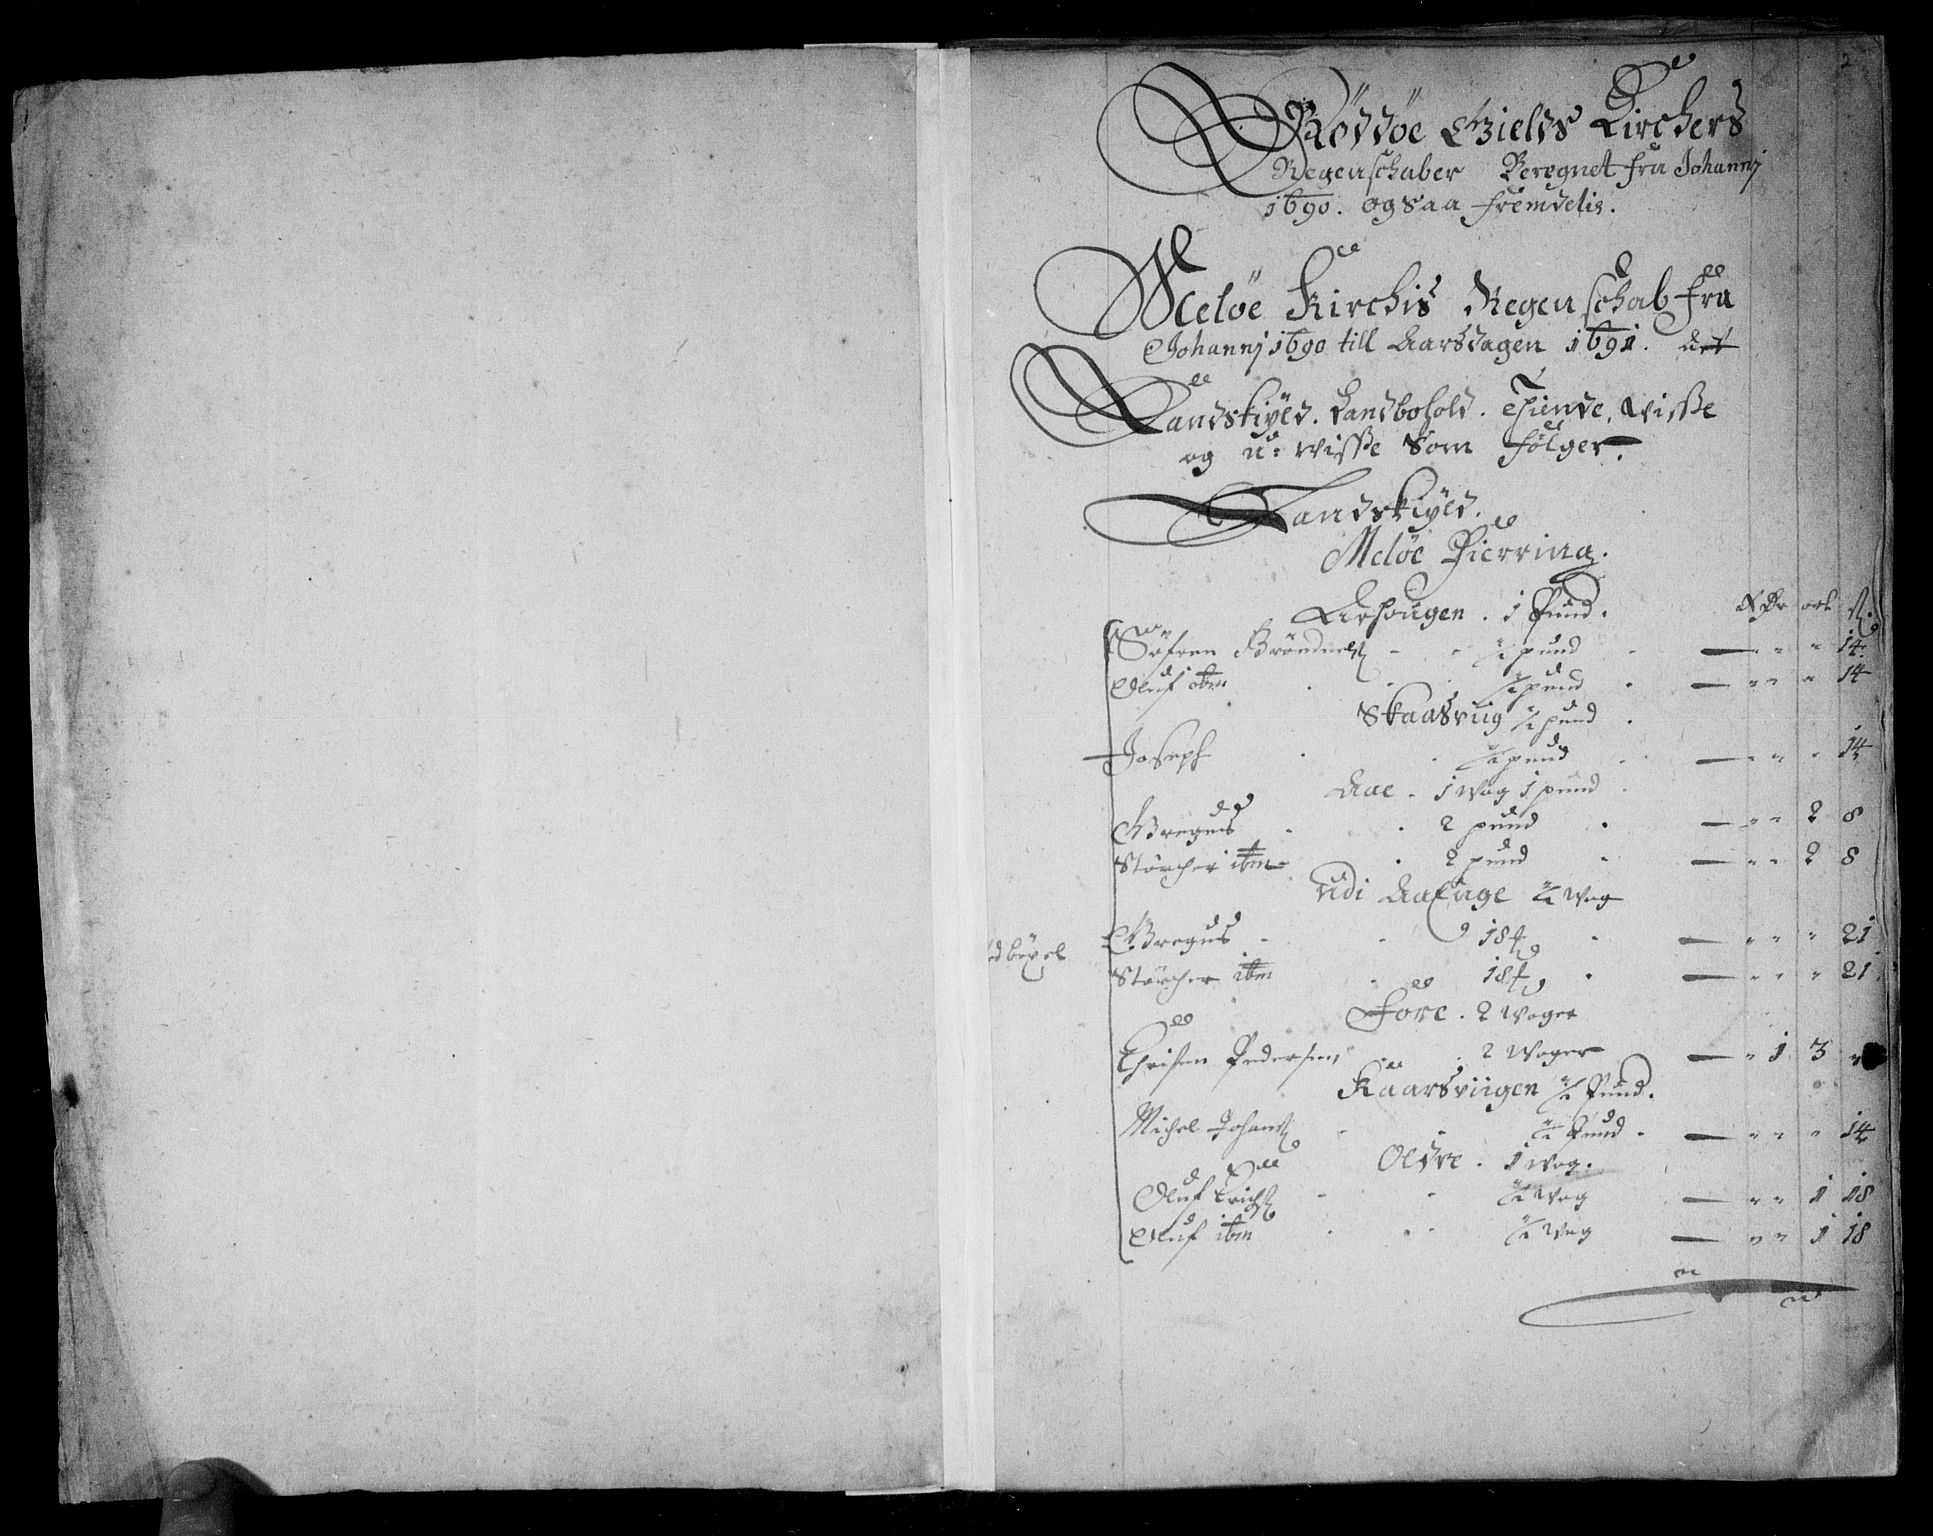 2
Röddöe Gields Kirchers
Regenschaber Beregnet fra Johannj
1690. og saa fremdelis.
Melöe Kirchis Regenschab fra
Johannj 1690 till Aarsdagen 1691.
Landskÿld. Landbohold. Thiende, Wisse
og u: wisse Som fölger.
Landskÿld.
Melöe Fierring.
Arhougen. 1 Pund. Rdr ort s.
Söfren Bröndnels ½ pund — " " " 14.
Oluf ibm ½ pund — " " " 14
Skaasviig ½ pund.
Joseph ½ pund — " " " 14
Aae. 1 Wog 1 pund
Gregus 2 pund — " " 2 8
Störcher ibm 2 pund — " " 2 8
Udi Aaenge ½ Wog
Gregus 18 — " " " 21
Störcher ibm 18 — " " " 21
Före. 2 Woger
Chrisen Pedersen 2 Woger — " 1 3 "
Kaarsviigen ½ Pund.
Michel Johans ½ Pund. — " " " 14
Oldre. 1 Wog.
Oluf Erichs ½ Wog — " " 1 18
Oluf ibm ½ Wog — " " 1 18